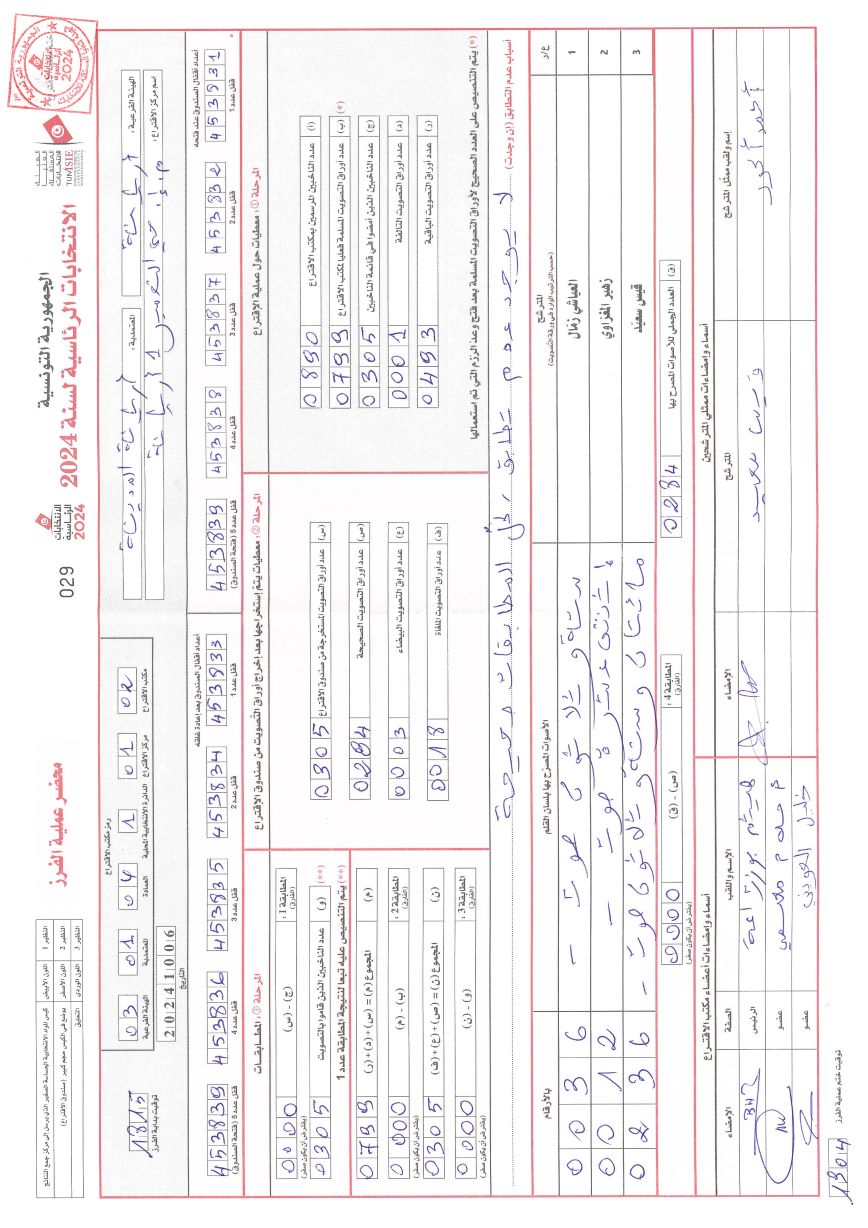 الجمهورية التونسية
الانتخابات الرئاسية لسنة 2024
الانتخابات
الرئاسية
2024
029
محضر عملية الفرز
النظير 1 اللون الأبيض
النظير 2 اللون الأصفر يوضع في الكيس حجم كبير (صندوق الاقتراع)
النظير 3 اللون الوردي التعليق
الهيئة الفرعية :
المعتمدية :
اسم مركز الاقتراع :
رمز مكتب الاقتراع
الهيئة الفرعية 03
المعتمدية 01
العمادة 04
الدائرة الانتخابية المحلية 1
مركز الاقتراع 01
مكتب الاقتراع 02
التاريخ
20241006
توقيت بداية الفرز
أعداد أقفال الصندوق عند فتحه
قفل عدد 1 453831
قفل عدد 2 453832
قفل عدد 3 453837
قفل عدد 4 453838
قفل عدد 5 (فتحة الصندوق) 453839
أعداد أقفال الصندوق بعد إعادة غلقه
قفل عدد 1 453833
قفل عدد 2 453834
قفل عدد 3 453835
قفل عدد 4 453836
قفل عدد 5 (فتحة الصندوق) 453839
المرحلة ① : معطيات حول عملية الاقتراع
(أ) عدد الناخبين المرسمين بمكتب الاقتراع 0890
(ب) عدد أوراق التصويت المسلمة فعليا لمكتب الاقتراع (*) 0799
(ج) عدد الناخبين الذين أمضوا في قائمة الناخبين 0305
(د) عدد أوراق التصويت التالفة 0001
(ر) عدد أوراق التصويت الباقية 0493
(*) يتم التنصيص على العدد الصحيح لأوراق التصويت المسلمة بعد فتح وعد الرزم التي تم استعمالها
المرحلة ② : معطيات يتم إستخراجها بعد إخراج أوراق التصويت من صندوق الاقتراع
(س) عدد أوراق التصويت المستخرجة من صندوق الاقتراع 0305
(ص) عدد أوراق التصويت الصحيحة 0284
(ع) عدد أوراق التصويت البيضاء 0003
(ف) عدد أوراق التصويت الملغاة 0018
المرحلة ③ : المطابقات
المطابقة 1 : (الفارق) (ج) - (س) 0000 (يفترض أن يكون صفر)
(و) عدد الناخبين الذين قاموا بالتصويت (**) 0305
(**) يتم التنصيص عليه تبعا لنتيجة المطابقة عدد 1
المجموع (م) = (س) + (د) + (ر) (م) 0799
المطابقة 2 : (الفارق) (ب) - (م) 0000 (يفترض أن يكون صفر)
المجموع (ن) = (ص) + (ع) + (ف) (ن) 0305
المطابقة 3 : (الفارق) (و) - (ن) 0000 (يفترض أن يكون صفر)
أسباب عدم التطابق (إن وجدت) : لا يوجد عدم تطابق، كل المطابقات صحيحة
ع/ر المترشح الأصوات المصرّح بها بلسان القلم بالأرقام
(حسب الترتيب الوارد في ورقة التصويت)
1 العياشي زمال ستة و ثلاثون صوت 0036
2 زهير المغزاوي إثنتي عشرة صوت 0012
3 قيس سعيد مائتان و ستة و ثلاثون صوت 0236
(ق) العدد الجملي للأصوات المصرح بها 0284
المطابقة 4 : (الفارق) (ص) - (ق) 0000 (يفترض أن يكون صفر)
أسماء وإمضاءات ممثلي المترشحين
إسم ولقب ممثل المترشح المترشح الإمضاء
قيس سعيد
أسماء وإمضاءات أعضاء مكتب الاقتراع
الاسم واللقب الصفة الإمضاء
الرئيس
عضو
عضو
توقيت ختم عملية الفرز